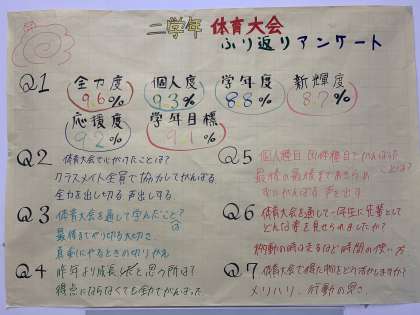 二学年 体育大会
ふり返りアンケート
Q1 全力度 個人度 学年度 新輝度
96% 93% 88% 87%
応援度 学年目標
92% 91%
Q2 体育大会で心がけたことは？
クラスメイト全員で協力してがんばる
全力を出し切る 声出しする
Q3 体育大会を通して学んだこと？
最後までやり切る大切さ
真剣にやるときの切りかえ
Q4 昨年より成長したと思う所は？
得点にならなくても全力でがんばった
Q5 個人種目 団体種目でがんばった
ことは？
最後の最後まであきらめ
ずにがんばる 声を出す
Q6 体育大会を通して一年生に先輩として
どんな姿を見せられましたか？
行動の時は走るなど時間の使い方
Q7 体育大会で得た物をどう活かしますか？
メリハリ、行動の早さ